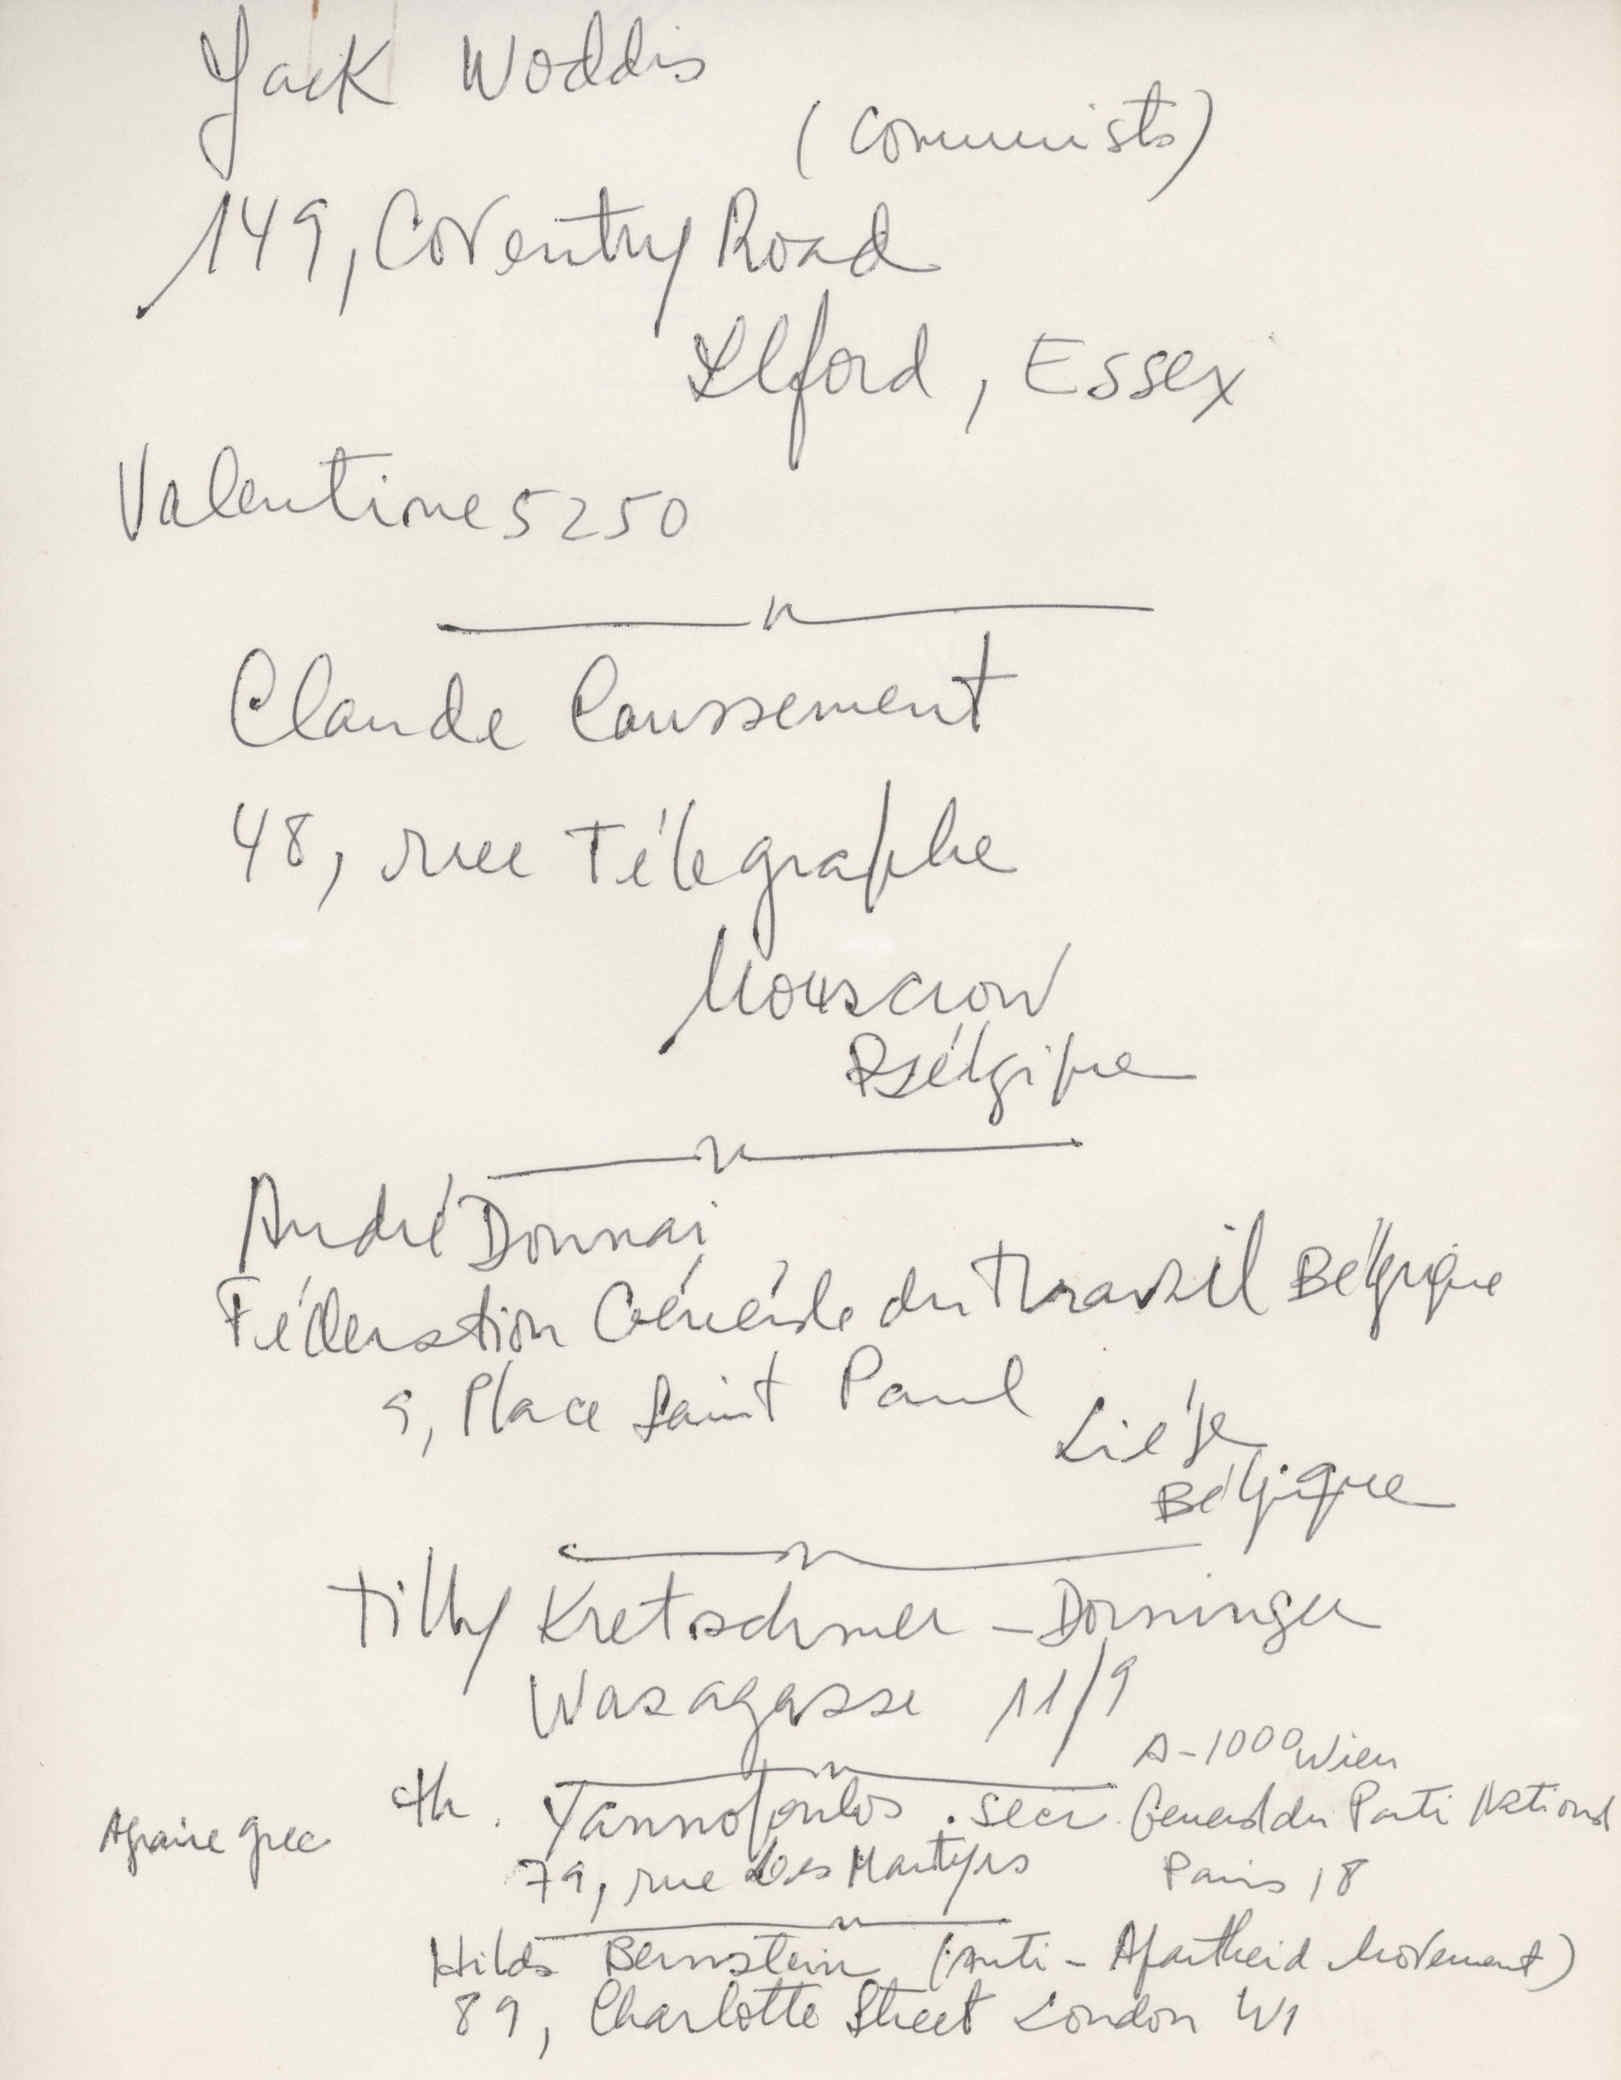 Jack Woddis
(Communists)
149, Coventry Road
Ilford, Essex
Valentine 5250
Claude Coussement
48, rue Télégraphe
Mouscron
Bélgique
André Donnai
Fédération Générale du Travail Bélgique
9, Place Saint Paul
Liége
Bélgique
Tilly Kretschmer - Dorninger
Wasagasse 11/9
A-1000 Wien
th. Yannopoulos. secr General du Parti National
Agraire grec
79, rue des Martyrs Paris 18
Hilda Bernstein (Anti-Apartheid Movement)
89, Charlotte Street London W1